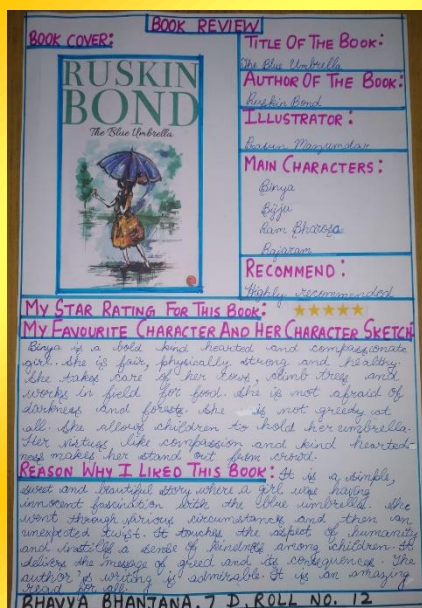 BOOK REVIEW
BOOK COVER:
RUSKIN
BOND
The Blue Umbrella
TITLE OF THE BOOK:
The Blue Umbrella
AUTHOR OF THE BOOK:
Ruskin Bond
ILLUSTRATOR:
Prasun Mazumdar
MAIN CHARACTERS:
Binya
Bijju
Ram Bharosa
Rajaram
RECOMMEND:
Highly recommended
MY STAR RATING FOR THIS BOOK:
MY FAVOURITE CHARACTER AND HER CHARACTER SKETCH:
Binya is a bold kind hearted and compassionate
girl. She is fair, physically strong and healthy.
She takes care of her cows, climb trees and
works in field for food. She is not afraid of
darkness and forests. She is not greedy at
all. She allows children to hold her umbrella.
Her virtues, like compassion and kind hearted-
ness makes her stand out from crowd.
REASON WHY I LIKED THIS BOOK: It is a simple,
sweet and beautiful story where a girl was having
innocent fascination with the blue umbrella. She
went through various circumstances and then an
unexpected twist. It touches the aspect of humanity
and instills a sense of kindness among children. It
delivers the message of greed and its consequences. The
author's writing is admirable. It is an amazing
read for all.
BHAVYA BHANJANA, 7 D, ROLL NO. 12